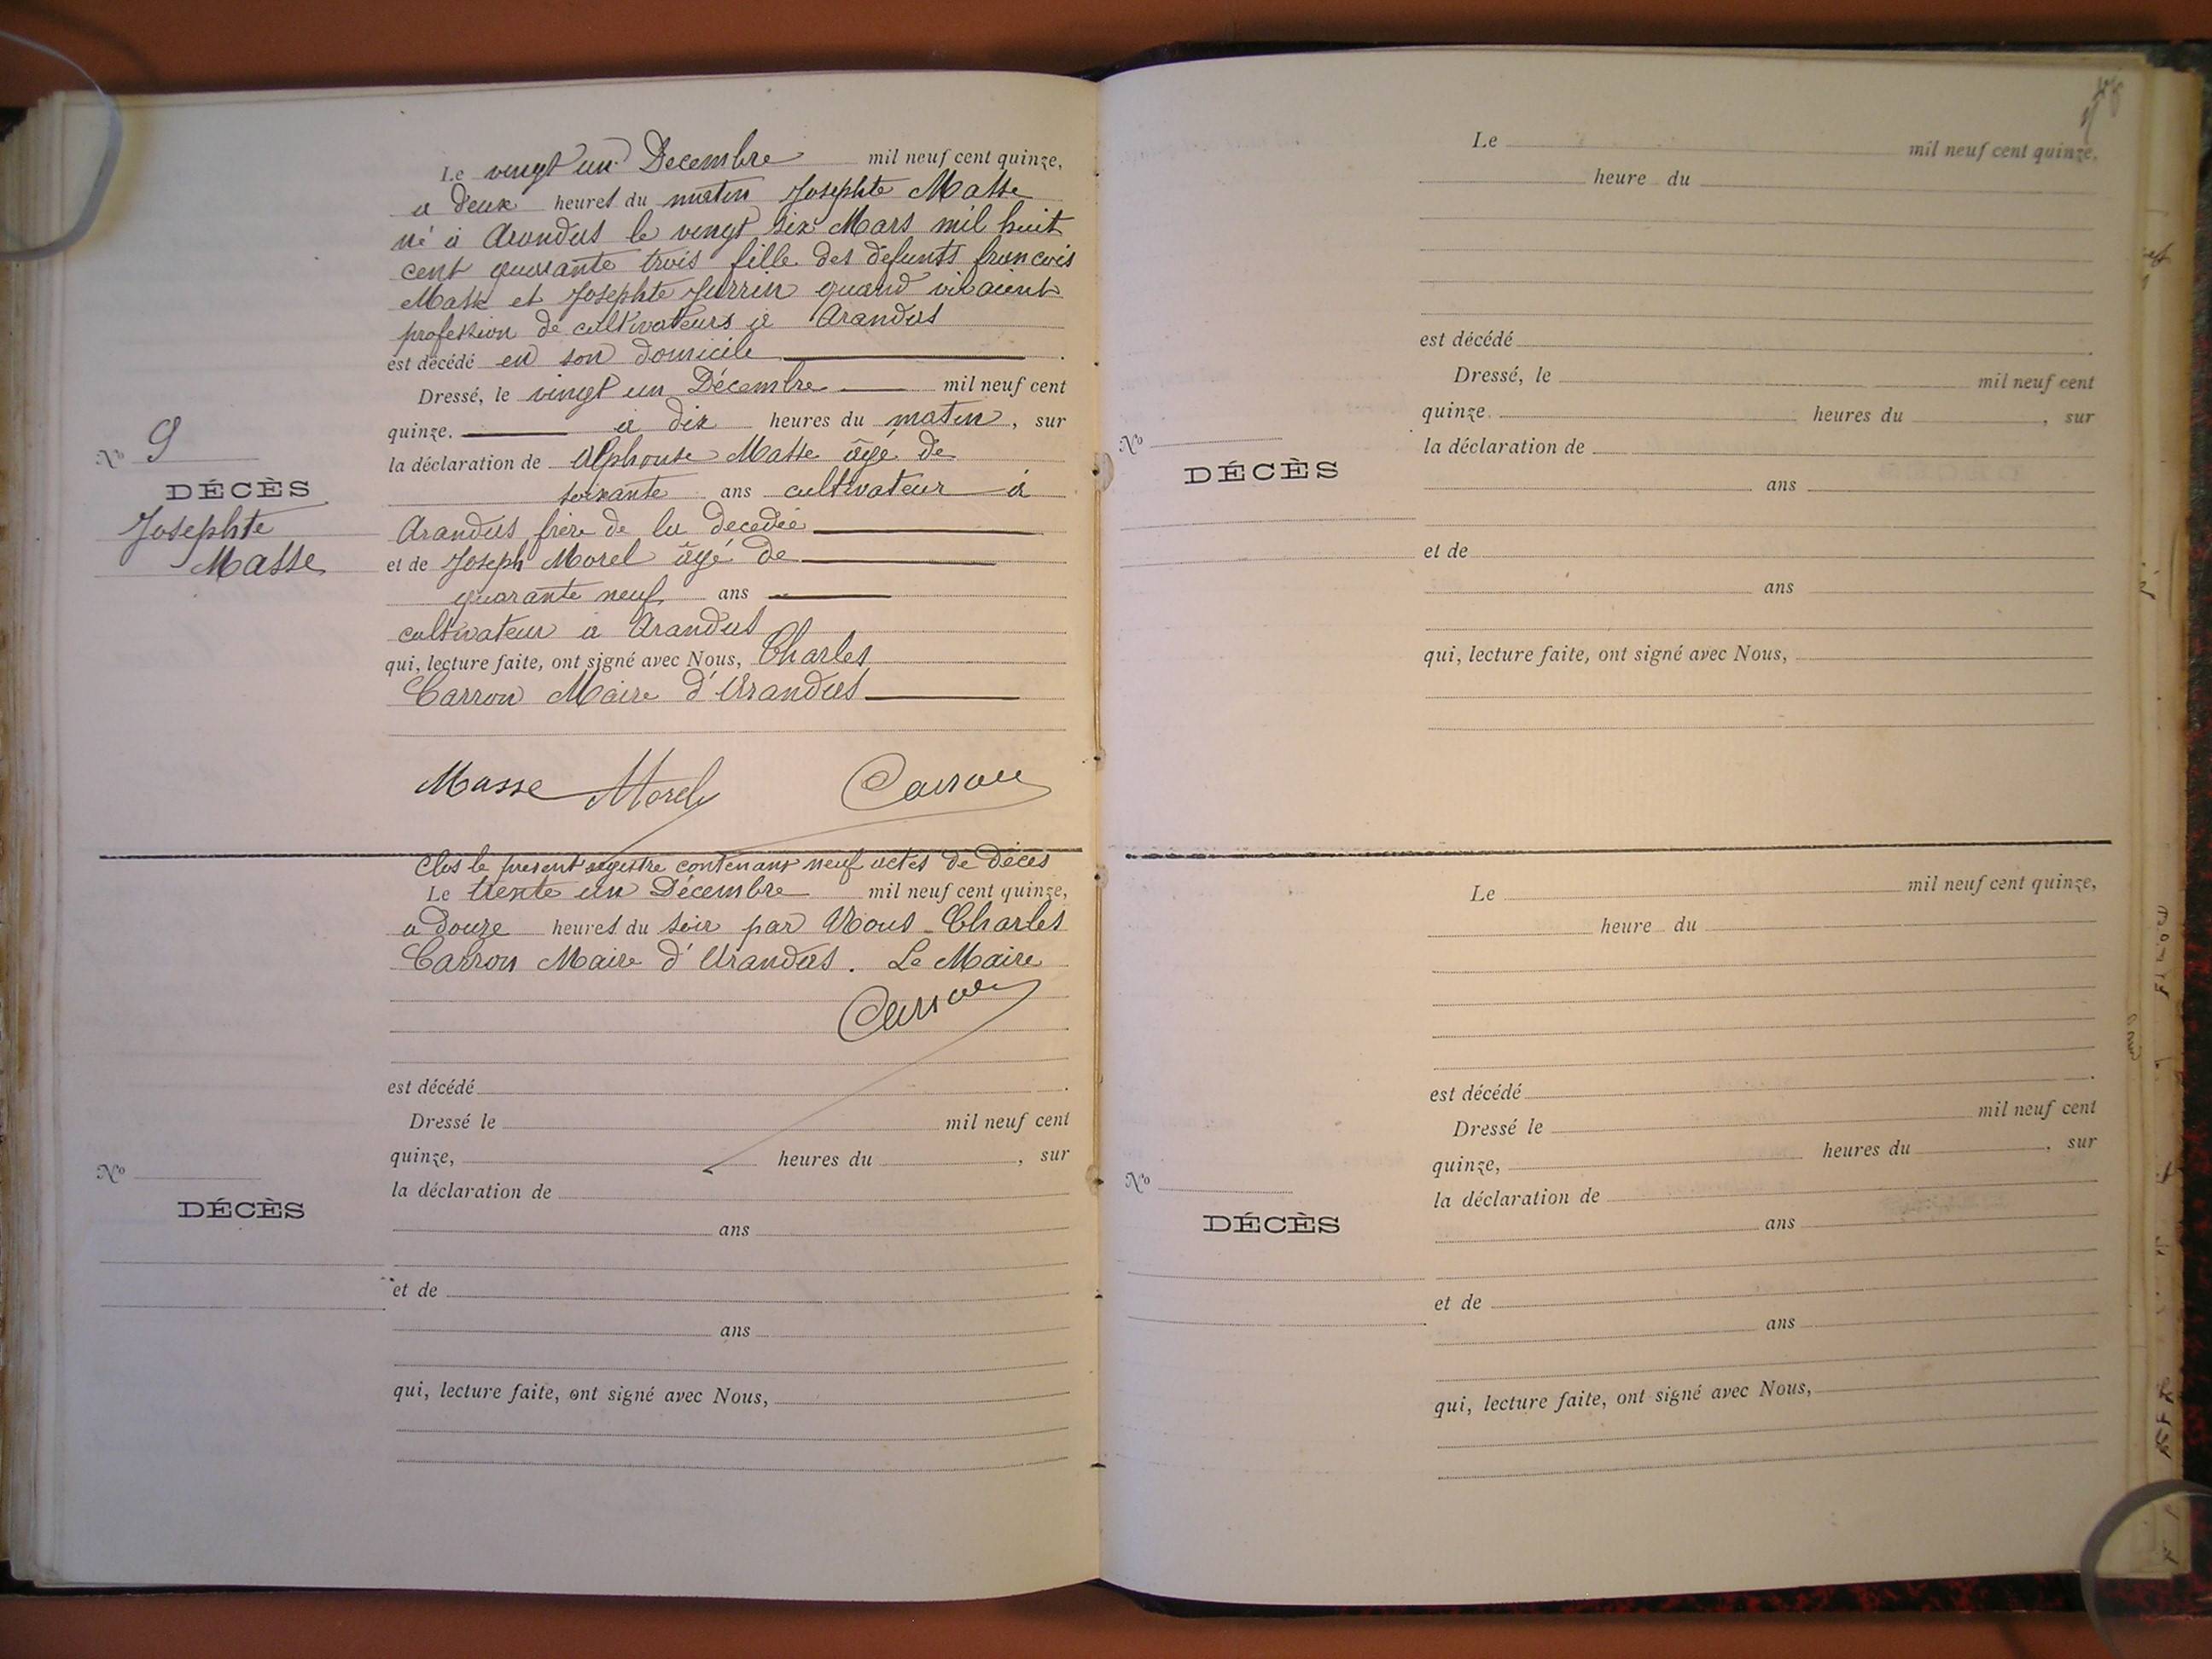 Le vingt un Decembre mil neuf cent quinze,
a deux heures du matin Josephte Masse
né à Arandas le vingt six Mars mil huit
cent quarante trois fille des défunts francois
Masse et Josephte Jurrin quand vivaient
profession de cultivateurs à Arandas
est décédé en son domicile .
Dressé, le vingt un Décembre mil neuf cent
quinze. à dix heures du matin, sur
la déclaration de Alphonse Masse âgé de
soixante ans cultivateur à
Arandas frère de la decedée
et de Joseph Morel âgé de
quarante neuf ans
cultivateur a Arandas
qui, lecture faite, ont signé avec Nous, Charles
Carron Maire d'Arandas
No 9
DÉCÈS
Josephte
Masse
Masse Morel Carron
Clos le present registre contenant neuf actes de décès
Le trente un Décembre mil neuf cent quinze,
a douze heures du soir par Nous Charles
Carron Maire d'Arandas. Le Maire
Carron
est décédé .
Dressé le mil neuf cent
quinze, heures du , sur
la déclaration de
ans
et de
ans
qui, lecture faite, ont signé avec Nous,
No
DÉCÈS
Le mil neuf cent quinze,
heure du
est décédé .
Dressé, le mil neuf cent
quinze. heures du , sur
la déclaration de
ans
et de
ans
qui, lecture faite, ont signé avec Nous,
No
DÉCÈS
Le mil neuf cent quinze,
heure du
est décédé .
Dressé le mil neuf cent
quinze, heures du , sur
la déclaration de
ans
et de
ans
qui, lecture faite, ont signé avec Nous,
No
DÉCÈS